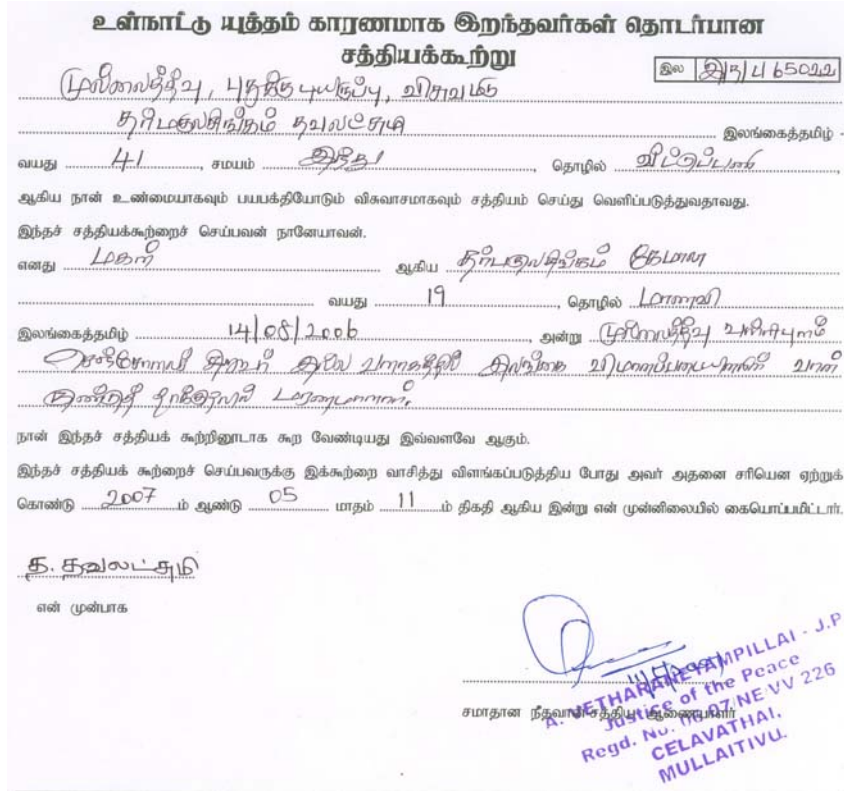 உள்நாட்டு யுத்தம் காரணமாக இறந்தவர்கள் தொடர்பான
சத்தியக்கூற்று
இல இறு/பு 65022
முல்லைத்தீவு, புதுக்குடியிருப்பு, விசுவமடு
தர்மகுலசிங்கம் தவலட்சுமி இலங்கைத்தமிழ் -
வயது 41, சமயம் இந்து, தொழில் வீட்டுப்பணி,
ஆகிய நான் உண்மையாகவும் பயபக்தியோடும் விசுவாசமாகவும் சத்தியம் செய்து வெளிப்படுத்துவதாவது.
இந்தச் சத்தியக்கூற்றைச் செய்பவன் நானேயாவன்.
எனது மகள் ஆகிய தர்மகுலசிங்கம் கேமாலா
வயது 19, தொழில் மாணவி
இலங்கைத்தமிழ் 14/08/2006, அன்று முல்லைத்தீவு வள்ளிபுனம்
செஞ்சோலை சிறுவர் இல்ல வளாகத்தில் இலங்கை விமானப்படையினரின் வான்
குண்டுத் தாக்குதலில் மரணமானார்.
நான் இந்தச் சத்தியக் கூற்றினூடாக கூற வேண்டியது இவ்வளவே ஆகும்.
இந்தச் சத்தியக் கூற்றைச் செய்பவருக்கு இக்கூற்றை வாசித்து விளங்கப்படுத்திய போது அவர் அதனை சரியென ஏற்றுக்
கொண்டு 2007 ம் ஆண்டு 05 மாதம் 11 ம் திகதி ஆகிய இன்று என் முன்னிலையில் கையொப்பமிட்டார்.
த. தவலட்சுமி
என் முன்பாக
சமாதான நீதவான் சத்திய ஆணையாளர்
TAMPILLAI - J.P
Justice of the Peace
Regd. No. 06.07/NE/VV 226
CELAVATHAI,
MULLAITIVU.